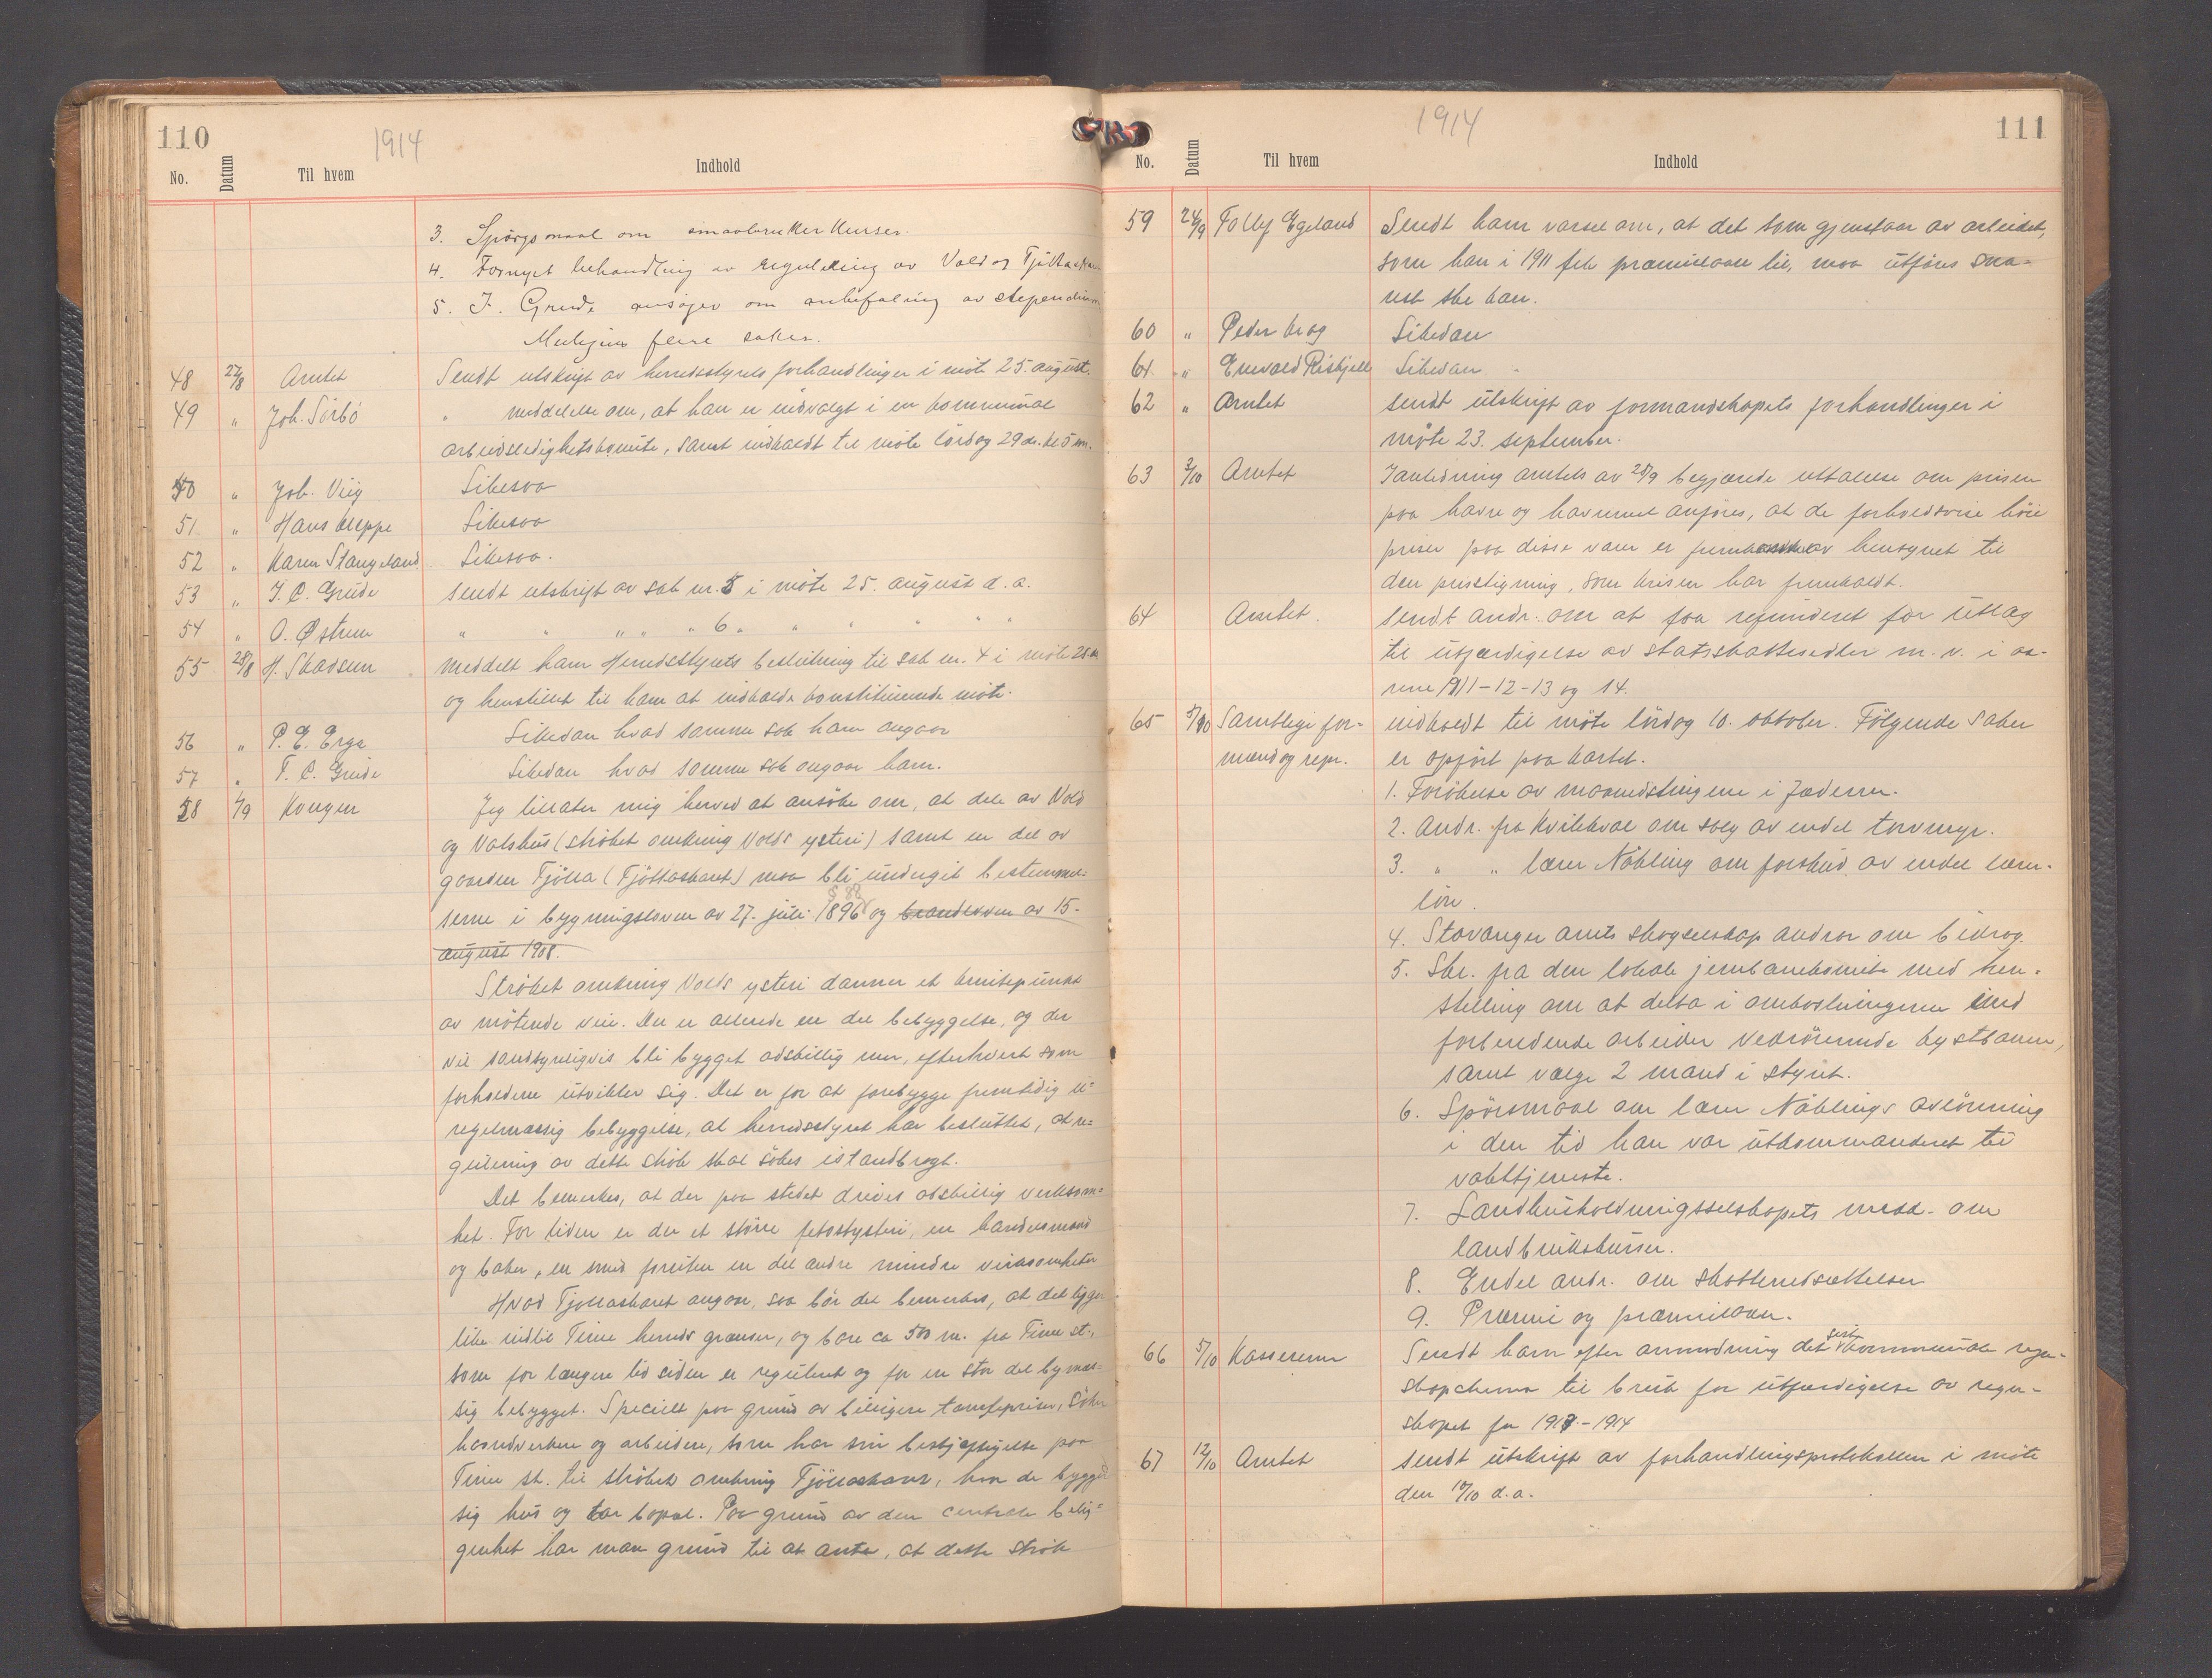 110
1914
No. Datum Til hvem Indhold
3. Spörgsmaal om smaabruker kurser.
4. Fornyet behandling av regulering av Vold og Tjöttaskar
5. J. Grude ansöger om anbefaling av stependium
Muligens flere saker.
48 27/8 Amtet Sendt utskrift av herredsstyrets forhandlinger i möte 25. august.
49 " Joh. Sörbö " meddelelse om, at han er indvalgt i en kommunal
arbeidsledighetskomite, samt indkaldt til möte lördag 29de. kl 5 em.
50 " Joh. Viig Likesaa
51. " Hans Kleppe Likesaa
52 " Karen Stangeland Likesaa.
53 " J. C. Grude sendt utskrift av sak nr. 5 i möte 25. august d. a.
54 " O. Østrem " " " " " 6 " " " " "
55 28/8 H. Skadsem meddelt ham Herredsstyrets beslutning til sak nr. 4 i möte 25/8
og henstillet til ham at indkalde konstituerende möte.
56 " P. E. Erga Likedan hvad samme sak ham angaar
57 " T. C. Grude Likedan hvad samme sak angaar ham.
58 1/9 Kongen Jeg tillater mig herved at ansöke om, at dele av Vold
og Valshus (ströket omkring Volds ysteri) samt en del av
gaarden Tjötta (Tjöttaskaret) maa bli undergit bestemmel-
serne i bygningsloven av 27. juli 1896 § 88 og brandloven av 15.
august 1908.
Ströket omkring Volds ysteri danner et knutepunkt
av mötende veie. Der er allerede en del bebyggelse, og der
vil sandsynligvis bli bygget adskillig mer, efterhvert som
forholdene utvikler sig. Det er for at forebygge fremtidig u-
regelmæssig bebyggelse, at herredsstyret har besluttet, at re-
gulering av dette strök skal sökes istandbragt.
Det bemerkes, at der paa stedet drives adskillig verksom-
het. For tiden er der et större fetostysteri, en handelsmand
og baker, en smed foruten en del andre mindre virksomheter
Hvad Tjöttaskaret angaar, saa bör det bemerkes, at det ligger
like indtil Time herreds grænser, og bare ca 500 m. fra Time st.,
som for længere tid siden er reguleret og for en stor del bymæs-
sig bebygget. Specielt paa grund av billigere tomtepriser, söker
haandverkere og arbeidere, som har sin beskjæftigelse paa
Time st. til ströket omkring Tjöttaskaret, hvor de bygger
sig hus og tar bopæl. Paa grund av den centrale belig-
genhet har man grund til at anta, at dette strök
111
1914
No. Datum Til hvem Indhold
59 24/9 Tollef Egeland Sendt ham varsel om, at det som gjenstaar av arbeidet,
som han i 1911 fik præmielaan til, maa utföres sna-
rest ske kan.
60 " Peder Krog Likedan
61 " Enevald Risfjell Likedan
62 " Amtet sendt utskrift av formandskapets forhandlinger i
möte 23. september.
63 3/10 Amtet I anledning amtets av 28/9 begjærede uttalelse om prisen
paa havre og havremel anföres, at de forholdsvise höie
priser paa disse varer er fremkommet av hensynet til
den prisstigning, som krisen har fremkaldt.
64 Amtet. sendt andr. om at faa refunderet for utlæg
til utfærdigelse av statsskattesedler m. v. i aa-
rene 1911-12-13 og 14.
65 5/10 Samtlige for- indkaldt til möte lördag 10. oktober. Fölgende saker
mænd og repr. er opfört paa kartet.
1. Forökelse av maanedstingene i Jæderen.
2. Andr. fra Kvilekval om salg av endel torvmyr.
3. " " lærer Nökling om forskud av endel lærer-
lön.
4. Stavanger amts skogselskap andrar om bidrag.
5. Skr. fra den lokale jernbanekomite med hen-
stilling om at delta i omkostningerne med
forberedende arbeider vedrörende kystbanen,
samt vælge 2 mænd i styret.
6. Spörsmaal om lærer Nöklings avlönning
i den tid han var utkommanderet til
vakttjeneste.
7. Landhusholdningsselskapets medd. om
landbrukskurser.
8. Endel andr. om skattenedsættelser
9. Præmie og præmielaan.
66 5/10 Kassereren Sendt ham efter anmodning det sidste kommunale regn-
skapschema til bruk for utfærdigelse av regn-
skapet for 1913-1914
67 12/10 Amtet sendt utskrift av forhandlingsprotokollen i möte
den 10/10 d. a.